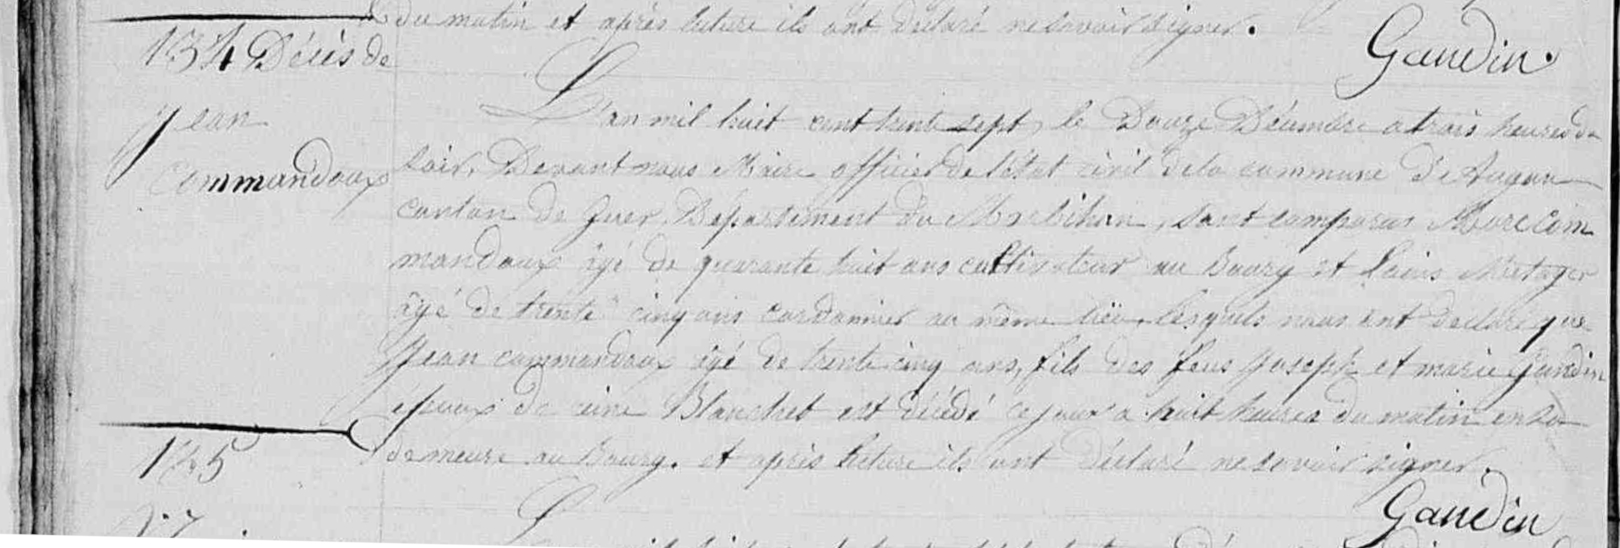 du matin et après lecture ils ont déclaré ne savoir signer.
Gaudin.
134 Décès de
Jean
Commandoux
L'an mil huit cent trente sept, le Douze Décembre a trois heures du
soir, Devant nous Maire officier de l'état civil de la commune d'Augan
canton de Guer Département du Morbihan, sont comparus Marc Com
mandoux âgé de quarante huit ans cultivateur au Bourg et Louis Metayer
âgé de trente cinq ans cordonnier au même lieu, lesquels nous ont déclaré que
Jean commandoux âgé de trente cinq ans, fils des feus Joseph et marie Gaudin
époux de reine Blanchet est décédé ce jour a huit heures du matin en sa
demeure au Bourg. et après lecture ils ont déclaré ne savoir signer.
Gaudin
135